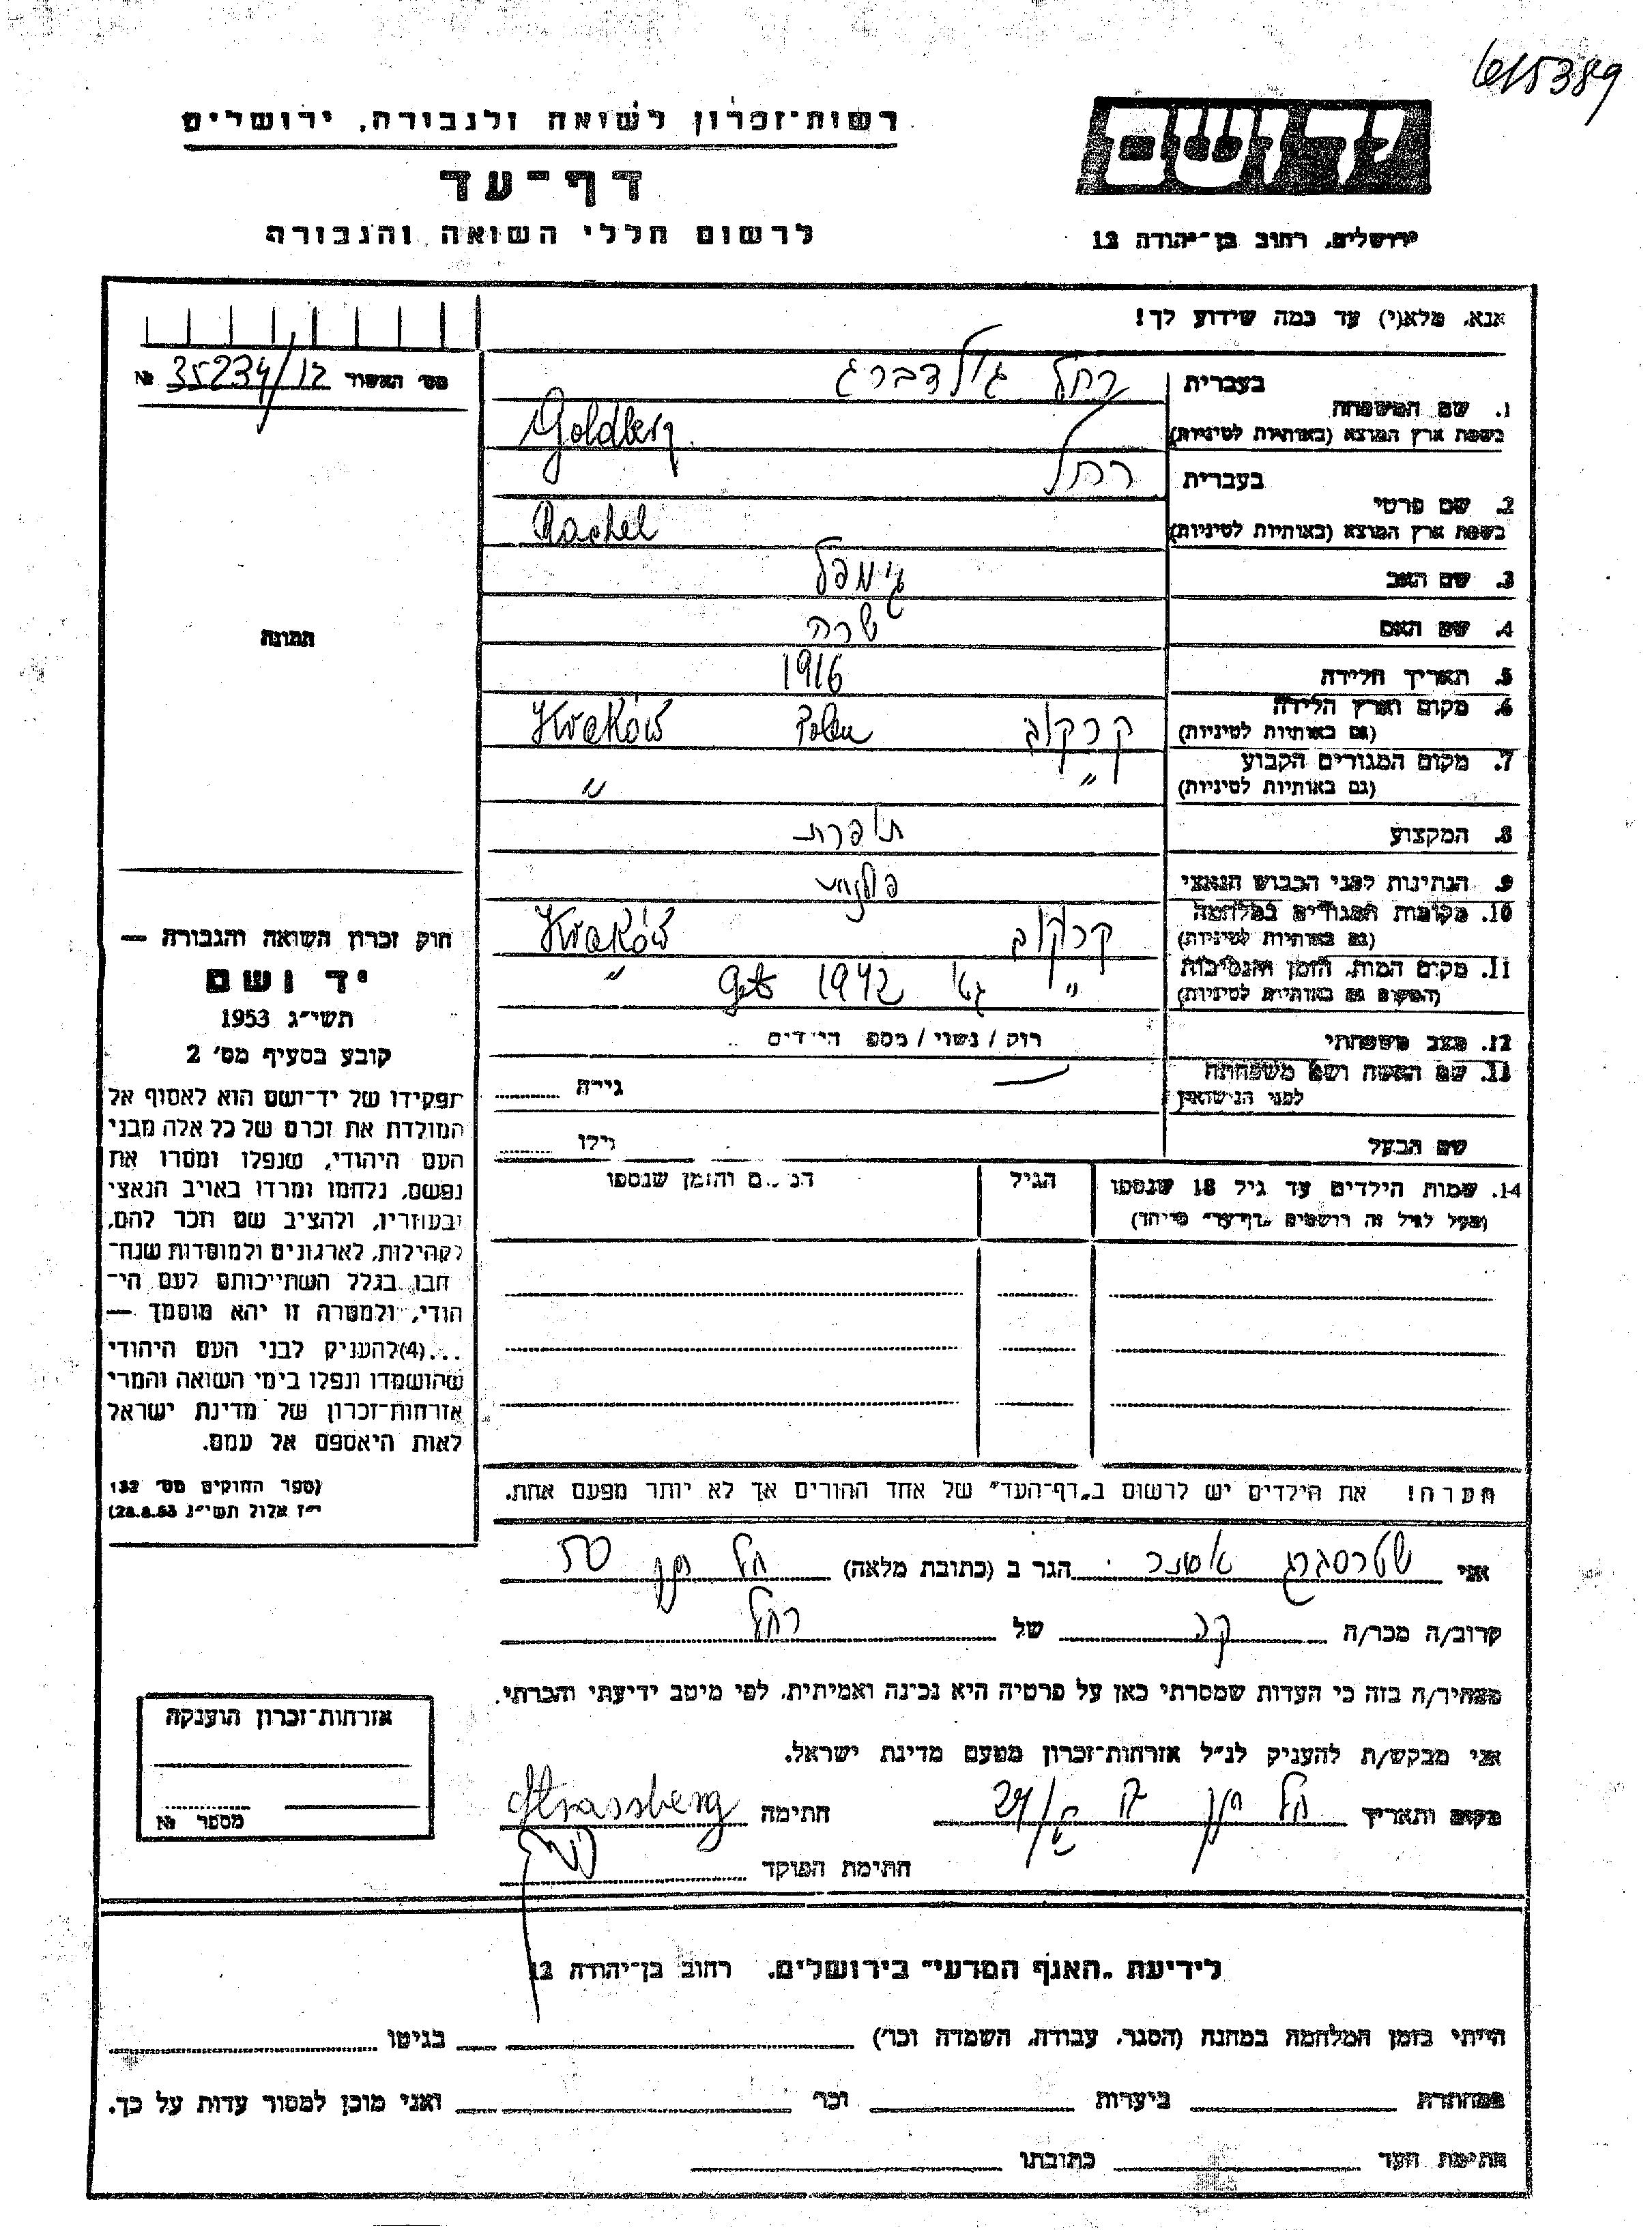 615389
רשות־זכרון לשואה ולגבורה, ירושלים
יד ושם
דף־עד
לרשום חללי השואה והגבורה
ירושלים, רחוב בן־יהודה 12
אנא, מלא(י) עד כמה שידוע לך!
מס' האשור № 35234/12
בעברית רחל גולדברג
1. שם המשפחה
בשפת ארץ המוצא (באותיות לטיניות) Goldberg
בעברית רחל
2. שם פרטי
בשפת ארץ המוצא (באותיות לטיניות) Rachel
3. שם האב גימפל
4. שם האם שרה
5. תאריך הלידה 1916
6. מקום וארץ הלידה קרקוב Polen Kraków
(גם באותיות לטיניות)
7. מקום המגורים הקבוע " "
(גם באותיות לטיניות)
8. המקצוע תופרת
9. הנתינות לפני הכבוש הנאצי
10. מקומות המגורים במלחמה קרקוב Kraków
(גם באותיות לטיניות)
11. מקום המות, הזמן והנסיבות " 1942 "
(המקום גם באותיות לטיניות)
12. מצב משפחתי רווק / נשוי / מספ הילדים
13. שם האשה ושם משפחתה גילה
לפני הנישואין
שם הבעל גילו
14. שמות הילדים עד גיל 18 שנספו הגיל המקום והזמן שנספו
(מעל לגיל זה רושמים "דף־עד" מיוחד)
תמונה
חוק זכרון השואה והגבורה —
יד ושם
תשי״ג 1953
קובע בסעיף מס' 2
תפקידו של יד־ושם הוא לאסוף אל
המולדת את זכרם של כל אלה מבני
העם היהודי, שנפלו ומסרו את
נפשם, נלחמו ומרדו באויב הנאצי
ובעוזריו, ולהציב שם וזכר להם,
לקהילות, לארגונים ולמוסדות שנח־
רבו בגלל השתייכותם לעם הי־
הודי, ולמטרה זו יהא מוסמך —
...(4)להעניק לבני העם היהודי
שהושמדו ונפלו בימי השואה והמרי
אזרחות־זכרון של מדינת ישראל
לאות היאספם אל עמם.
(ספר החוקים מס' 132
י״ז אלול תשי״ג 28.8.53)
הערה! את הילדים יש לרשום ב"דף־העד" של אחד ההורים אך לא יותר מפעם אחת.
אני שטרסברג אסתר הגר ב (כתובת מלאה) תל חנן 50
קרוב/ה מכר/ה של רחל
מצהיר/ה בזה כי העדות שמסרתי כאן על פרטיה היא נכונה ואמיתית, לפי מיטב ידיעתי והכרתי.
אני מבקש/ת להעניק לנ״ל אזרחות־זכרון מטעם מדינת ישראל.
מקום ותאריך תל חנן חתימה Strassberg
חתימת הפוקד
אזרחות־זכרון הוענקה
מספר №
לידיעת "האגף המדעי" בירושלים, רחוב בן־יהודה 12
הייתי בזמן המלחמה במחנה (הסגר, עבודה, השמדה וכו') בגיטו
במחתרת ביערות וכו' ואני מוכן למסור עדות על כך.
חתימת העד כתובתו